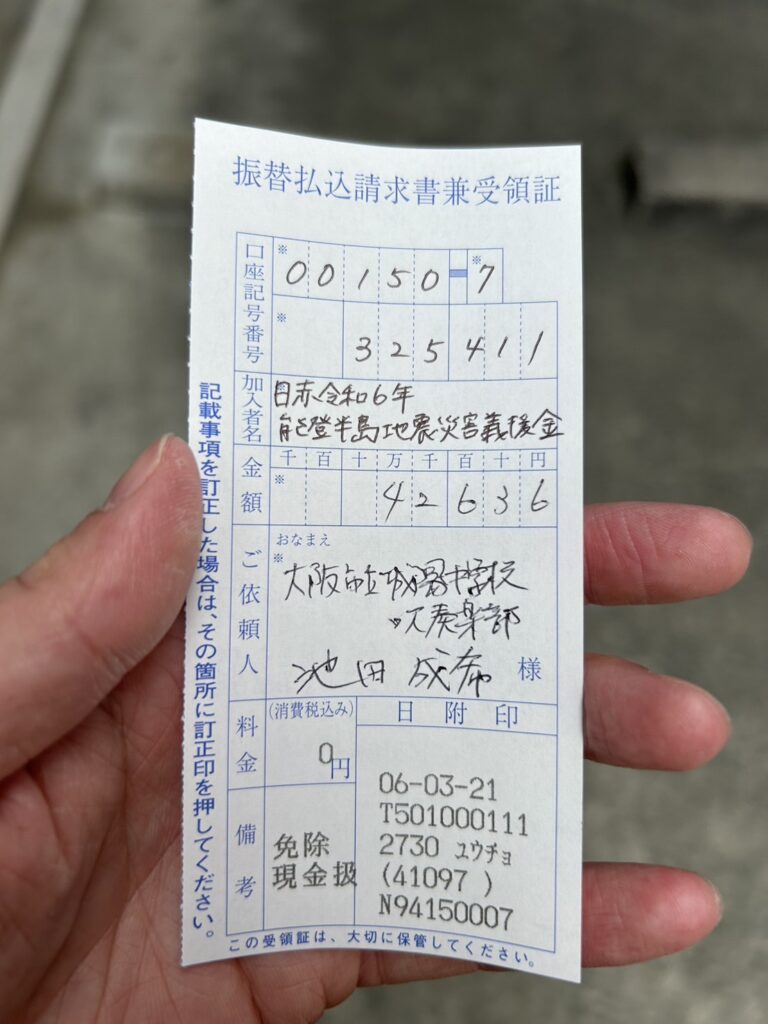 振替払込請求書兼受領証
口座記号番号
※ 00150 - ※ 7
※ 325411
加入者名
日赤令和6年
能登半島地震災害義援金
金額
千 百 十 万 千 百 十 円
※ 42636
ご依頼人
おなまえ
※
大阪市立城陽中学校
吹奏楽部
池田 成希 様
料金
(消費税込み)
0円
日附印
06-03-21
T501000111
2730 ユウチョ
(41097 )
N94150007
備考
免除
現金扱
この受領証は、大切に保管してください。
記載事項を訂正した場合は、その箇所に訂正印を押してください。